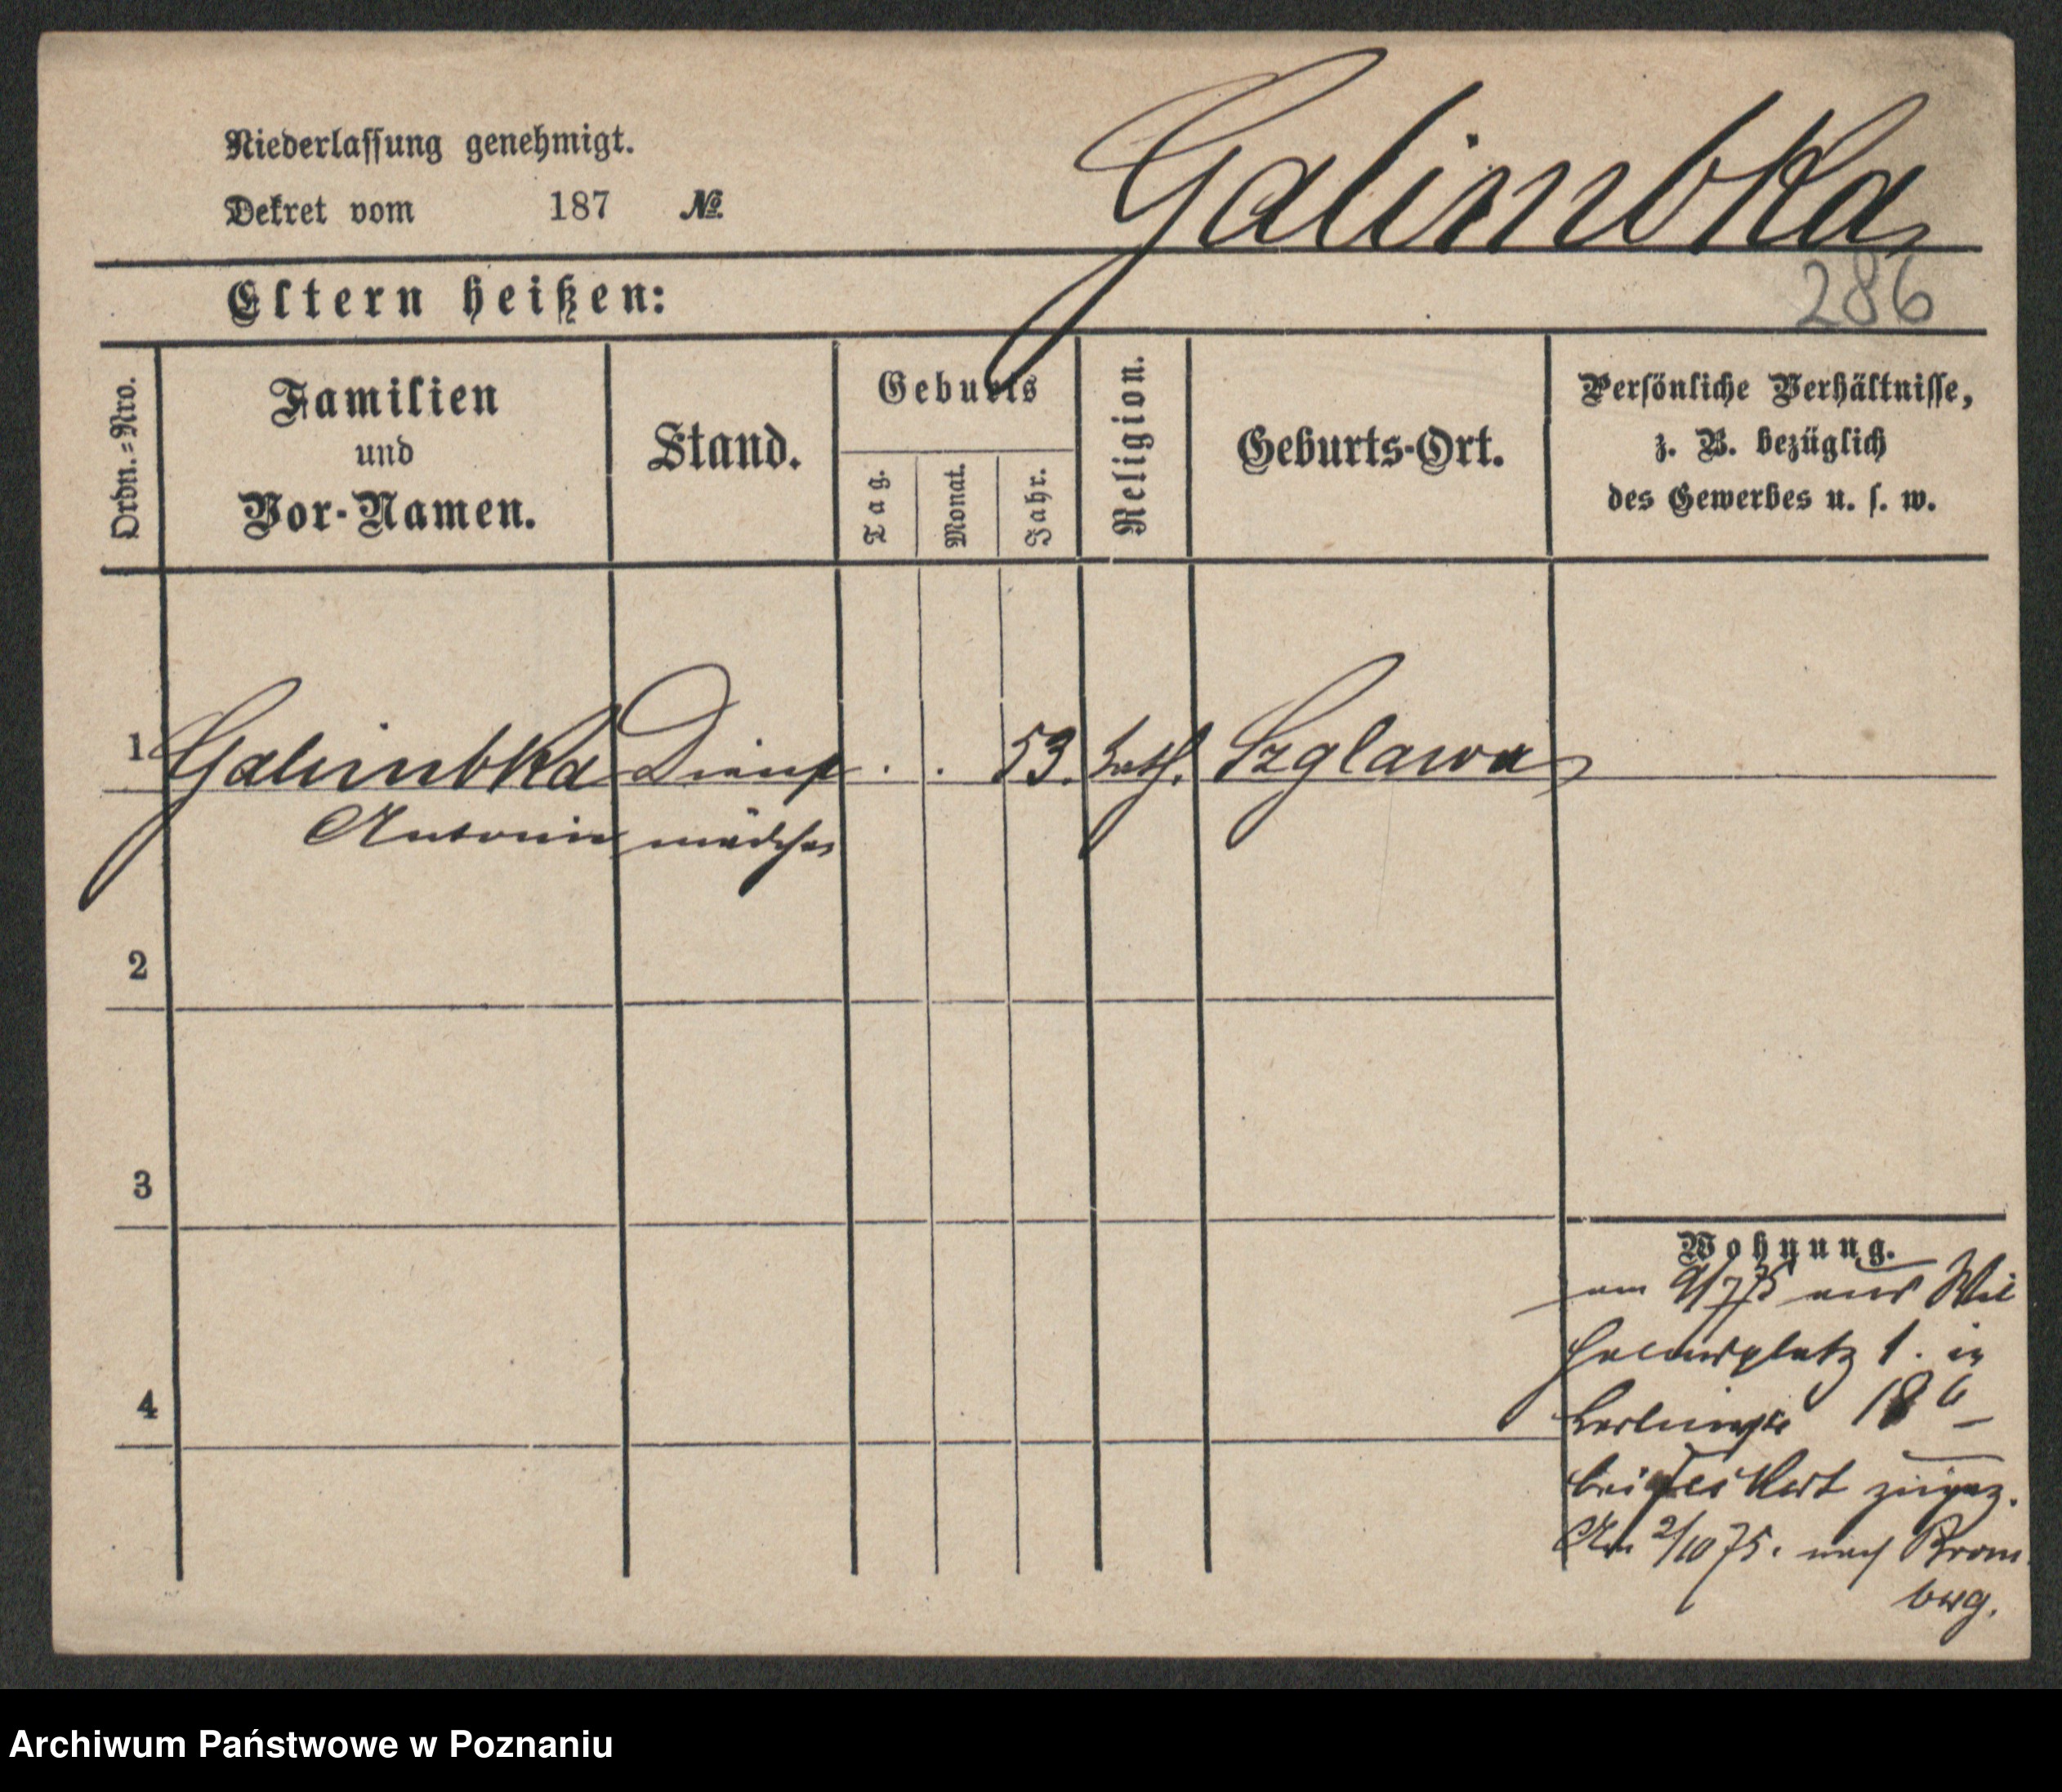 Niederlassung genehmigt.
Galimbka
Dekret vom 187 №
286
Eltern heißen:
Ordn.-Nro.
Familien
und
Vor-Namen.
Stand.
Geburts
Tag.
Monat.
Jahr.
Religion.
Geburts-Ort.
Persönliche Verhältnisse,
z. B. bezüglich
des Gewerbes u. s. w.
1 Galimbka Dienst . . 53. kath. Szglawa
Antonie mädchen
2
3
4
Wohnung.
am 9/7 75 aus Wil
helmsplatz 1. in
18
bei zugez.
Am 2/10 75. nach Brom
berg.
Archiwum Państwowe w Poznaniu